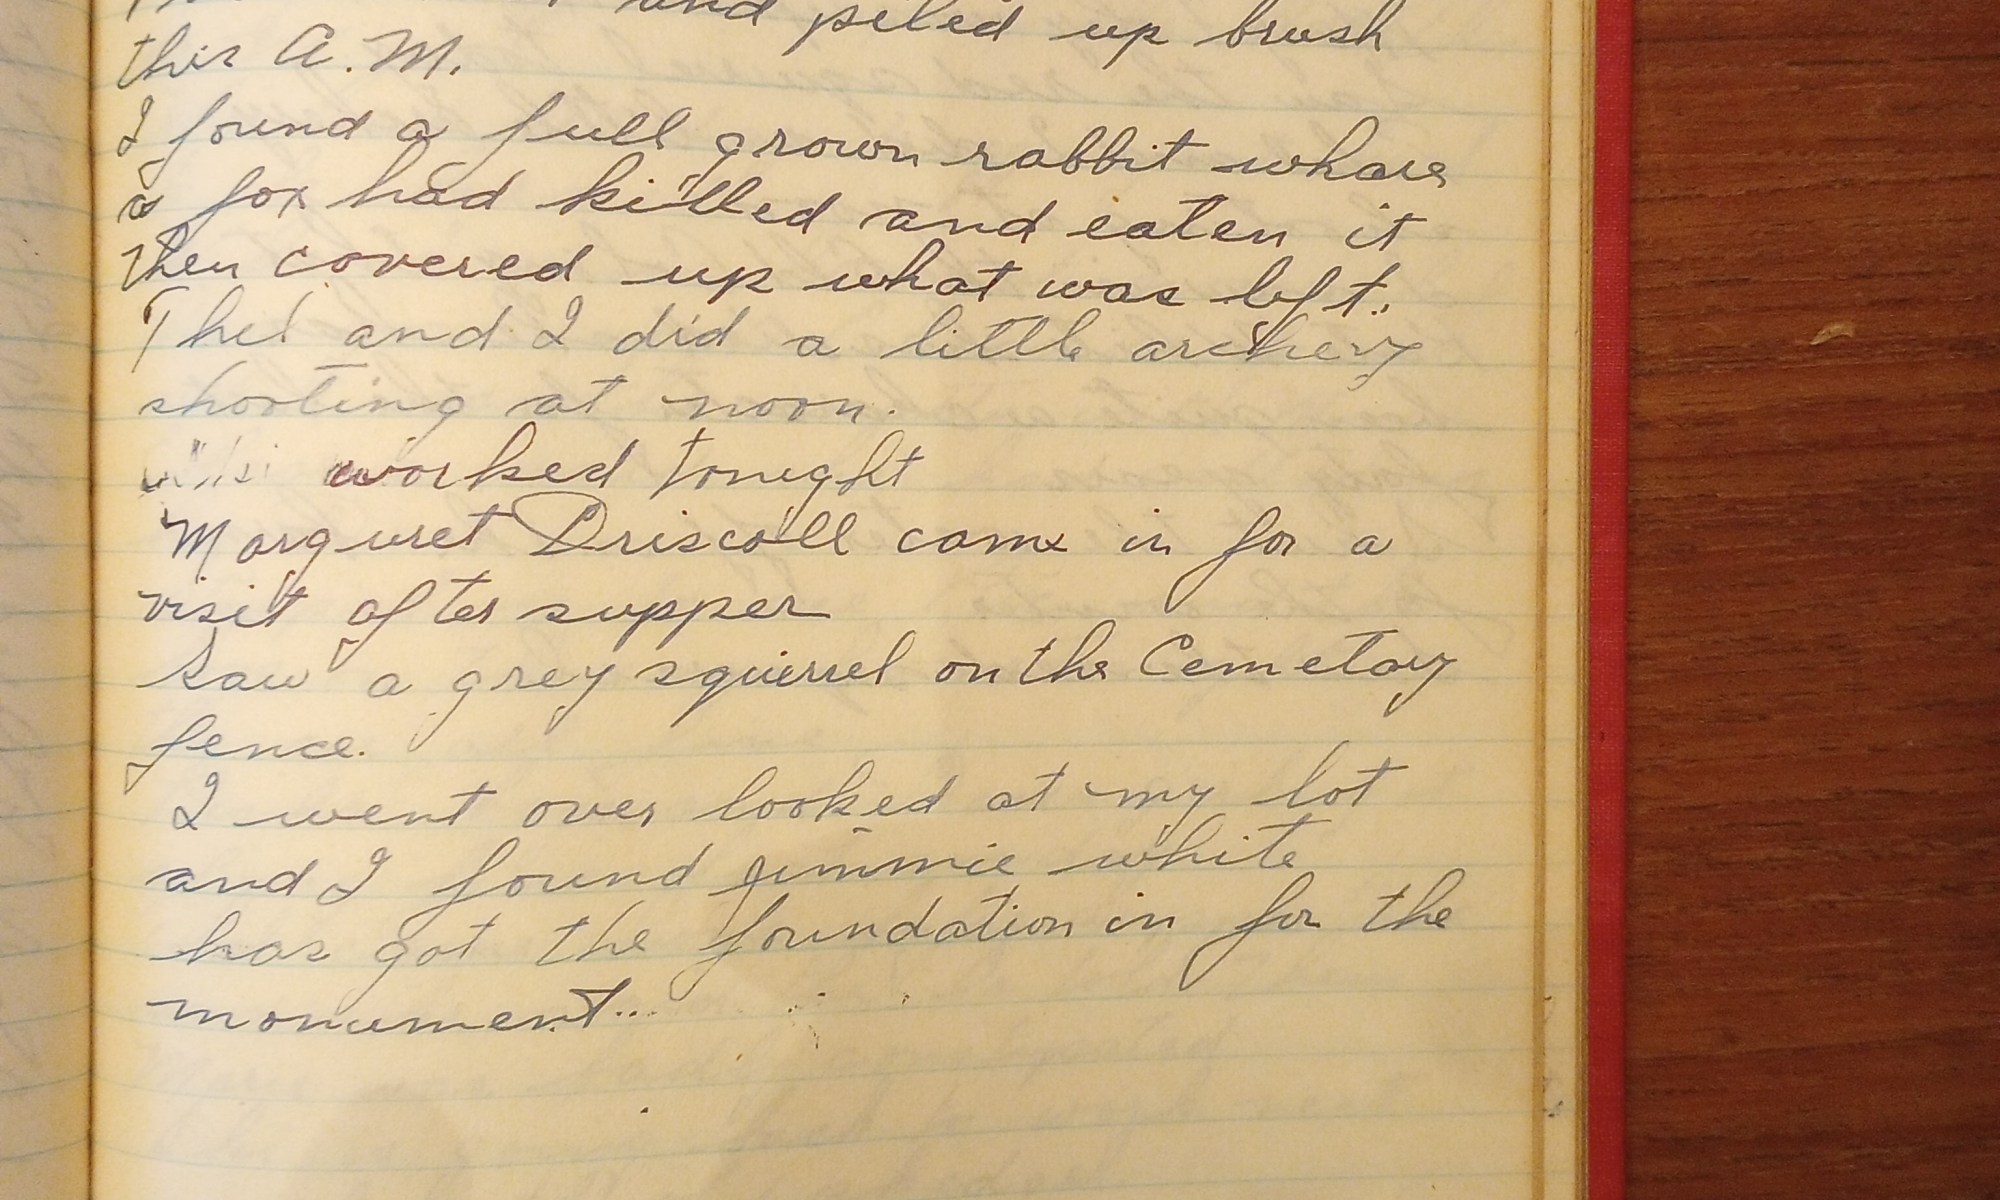 and piled up brush
this A.M.
I found a full grown rabbit whare
a fox had killed and eaten it
then covered up what was left.
Thel and I did a little archery
shooting at noon.
worked tonight
Marguret Driscoll came in for a
visit after supper
Saw a grey squirrel on the Cemetary
fence.
I went over looked at my lot
and I found Jimmie white
has got the foundation in for the
monument..